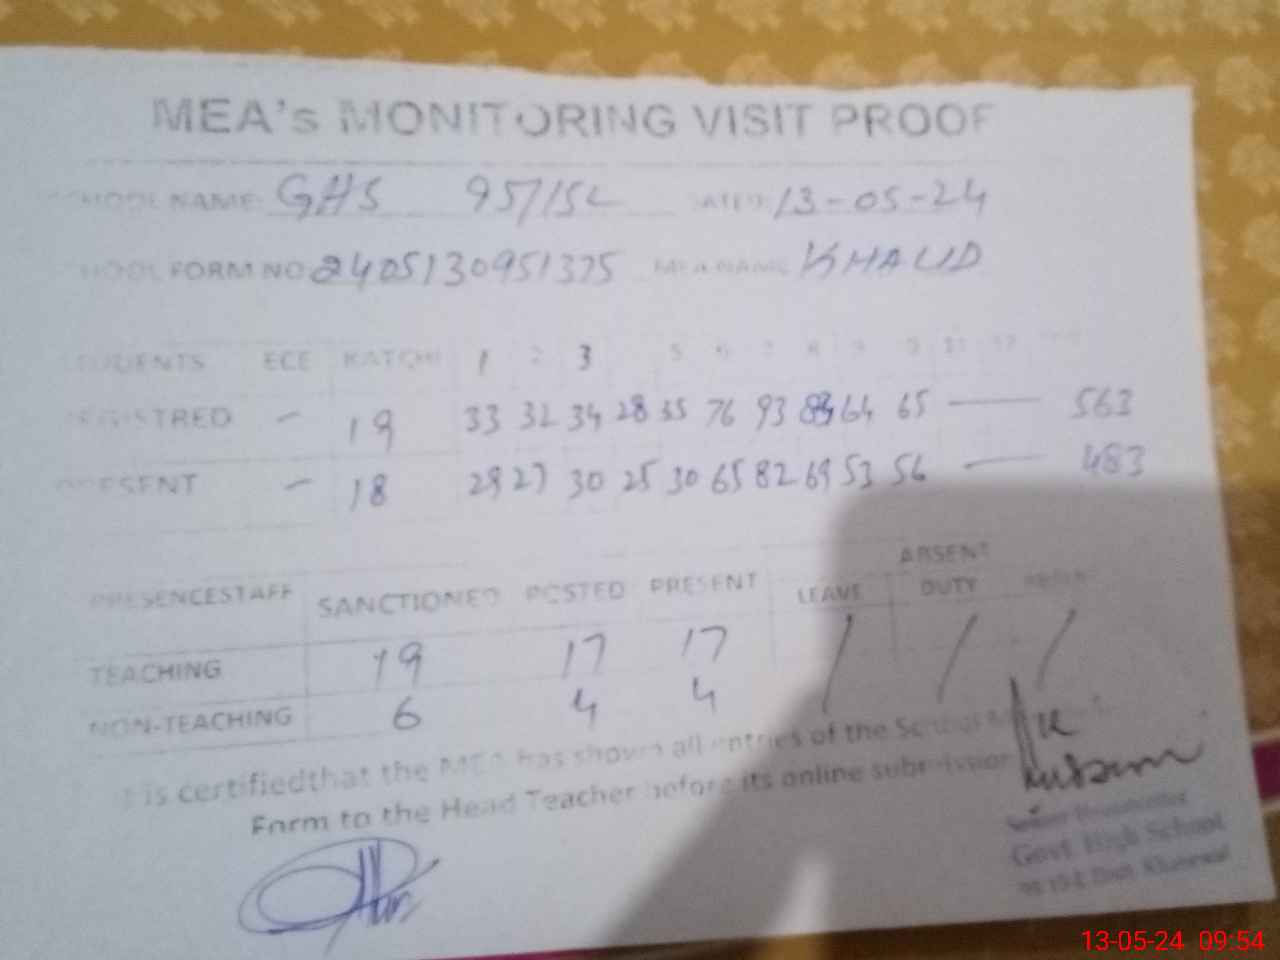 MEA's MONITORING VISIT PROOF
SCHOOL NAME: GHS 95/15L DATED: 13-05-24
SCHOOL FORM NO 2405130951375 MEA NAME KHALID
STUDENTS ECE KATCHI 1 2 3 5 6 7 8 9 11 12
REGISTRED - 19 33 32 34 28 35 76 93 64 65 — 563
PRESENT - 18 29 27 30 25 30 65 82 69 53 56 — 483
ABSENT
PRESENCESTAFF SANCTIONED POSTED PRESENT LEAVE DUTY
TEACHING 19 17 17 / / /
NON-TEACHING 6 4 4
It is certifiedthat the MEA has shown all entries of the School
Form to the Head Teacher before its online submission
Govt. High School
13-05-24 09:54